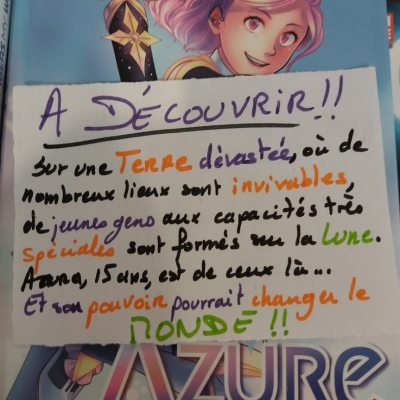 A DÉCOUVRIR!!
Sur une TERRE dévastée, où de
nombreux lieux sont invivables,
de jeunes gens aux capacités très
spéciales sont formés sur la Lune.
Azura, 15 ans, est de ceux là...
Et son pouvoir pourrait changer le
MONDE!!
AZURE